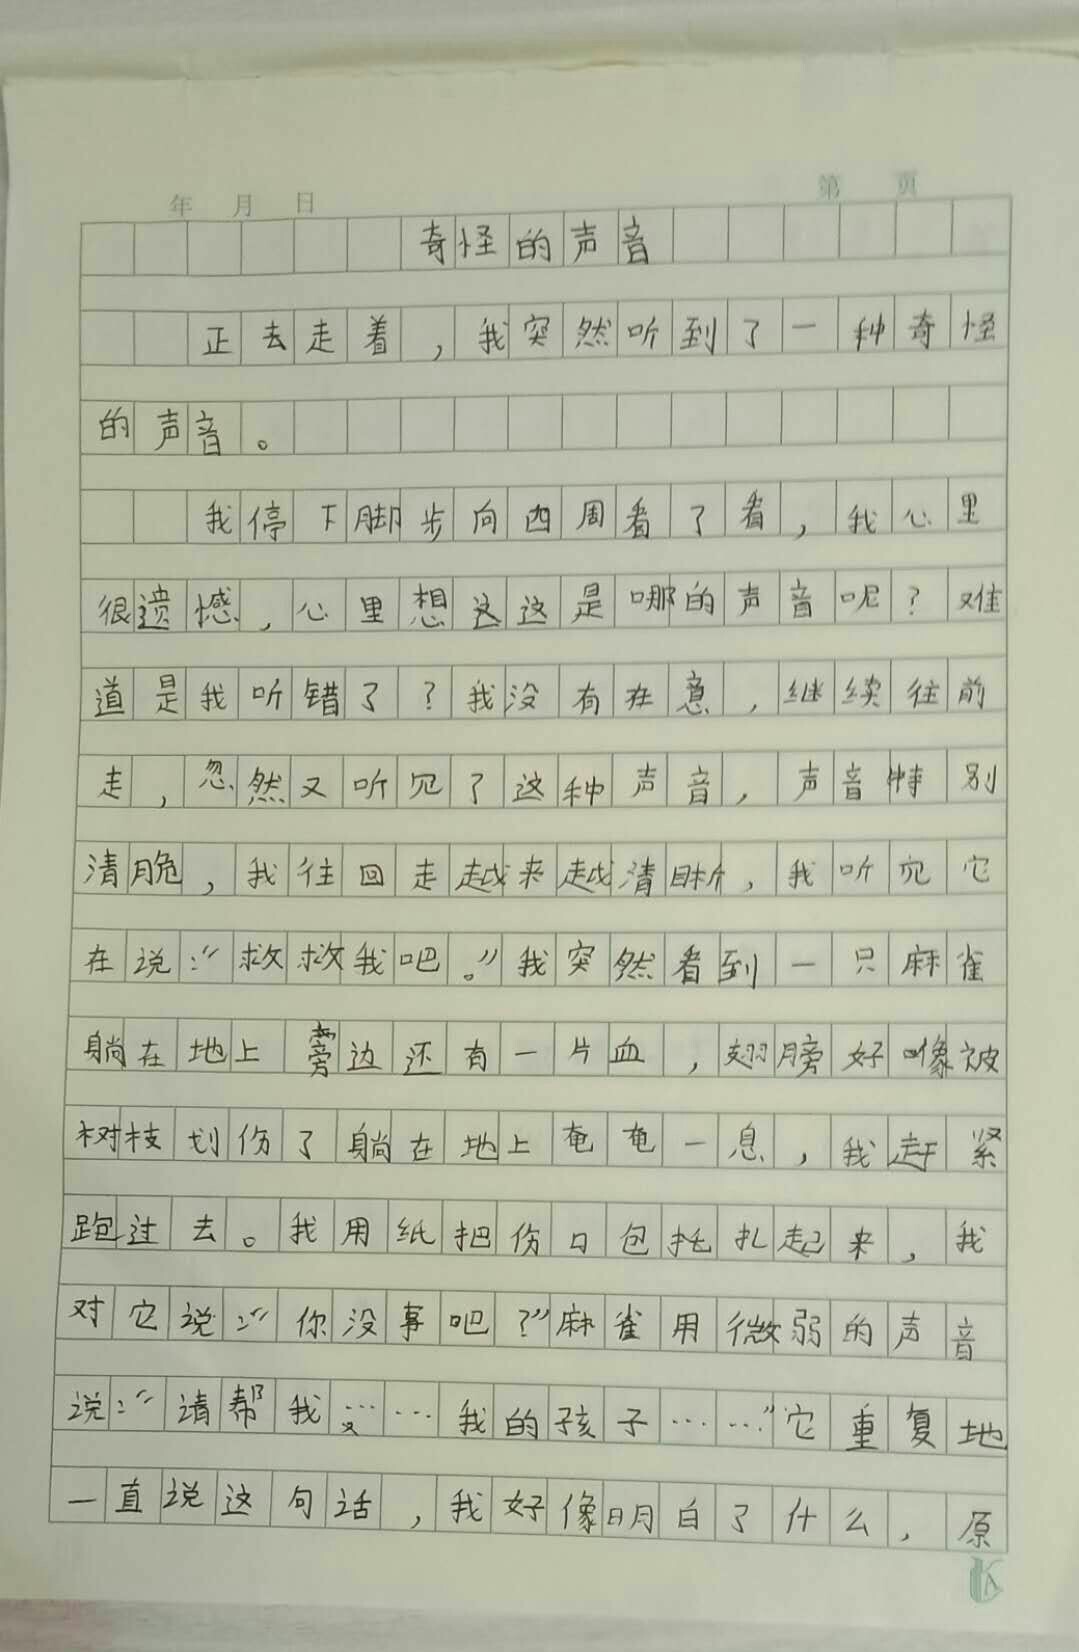 年 月 日
第 页
奇怪的声音
正去走着，我突然听到了一种奇怪
的声音。
我停下脚步向四周看了看，我心里
很遗憾，心里想这这是哪的声音呢？难
道是我听错了？我没有在意，继续往前
走，忽然又听见了这种声音，声音特别
清脆，我往回走越来越清晰，我听见它
在说：“救救我吧。”我突然看到一只麻雀
躺在地上旁边还有一片血，翅膀好像被
树枝划伤了躺在地上奄奄一息，我赶紧
跑过去。我用纸把伤口包扎起来，我
对它说：“你没事吧？”麻雀用微弱的声音
说：“请帮我……我的孩子……”它重复地
一直说这句话，我好像明白了什么，原